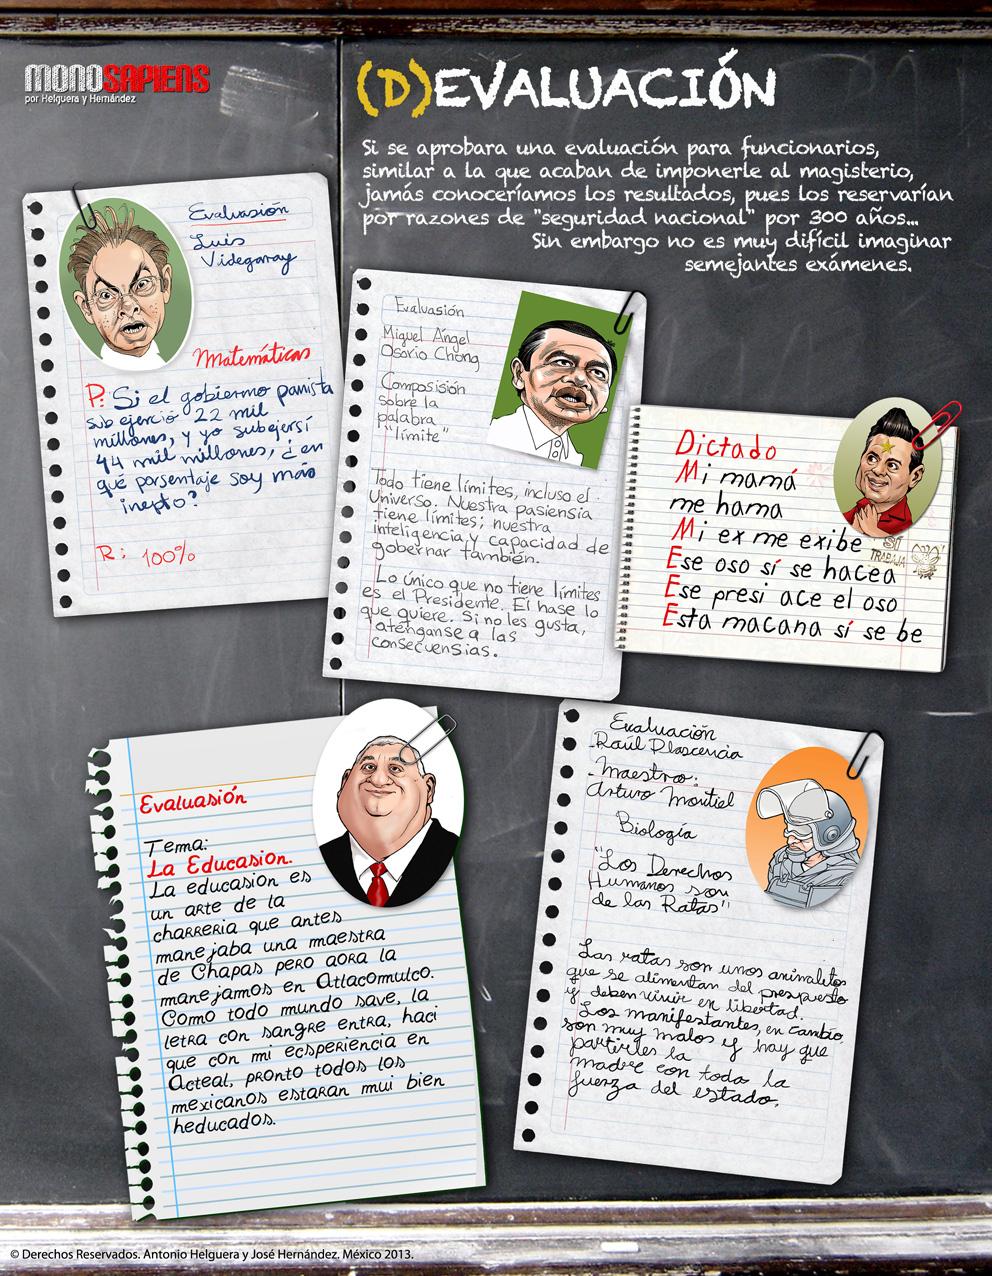 MONOSAPIENS
por Helguera y Hernández
(D)EVALUACIÓN
Si se aprobara una evaluación para funcionarios,
similar a la que acaban de imponerle al magisterio,
jamás conoceríamos los resultados, pues los reservarían
por razones de "seguridad nacional" por 300 años...
Sin embargo no es muy difícil imaginar
semejantes exámenes.
Evaluasión
Luis
Videgaray
Matemáticas
P: Si el gobierno panista
sub ejerció 22 mil
millones, y yo subejersí
44 mil millones, ¿en
qué porsentaje soy más
inepto?
R: 100%
Evaluasión
Miguel Ángel
Osorio Chong
Composisión
sobre la
palabra
"límite"
Todo tiene límites, incluso el
Universo. Nuestra pasiensia
tiene límites; nuestra
inteligencia y capacidad de
gobernar también.
Lo único que no tiene límites
es el Presidente. Él hase lo
que quiere. Si no les gusta,
aténganse a las
consecuensias.
Dictado
Mi mamá
me hama
Mi ex me exibe
Ese oso sí se hacea
Ese presi ace el oso
Esta macana sí se be
SÍ
TRABAJA
Evaluasión
Tema:
La Educasion.
La educasion es
un arte de la
charreria que antes
manejaba una maestra
de Chapas pero aora la
manejamos en Atlacomulco.
Como todo mundo save, la
letra con sangre entra, haci
que con mi ecsperiencia en
Acteal, pronto todos los
mexicanos estaran mui bien
heducados.
Evaluación
Raúl Plascencia
Maestro:
Arturo Montiel
Biología
"Los Derechos
Humanos son
de las Ratas"
Las ratas son unos animalitos
que se alimentan del presupuesto
y deben vivir en libertad.
Los manifestantes, en cambio,
son muy malos y hay que
partirles la
madre con toda la
fuerza del estado.
© Derechos Reservados. Antonio Helguera y José Hernández. México 2013.